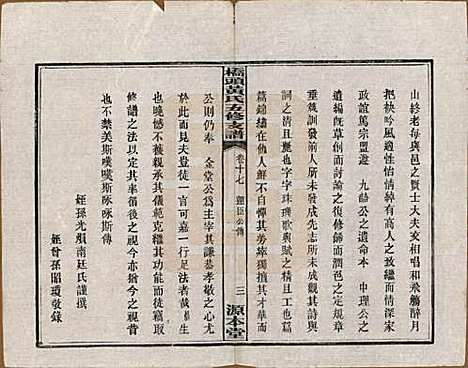 山終老每與邑之賢士大夫交相唱和飛觴醉月
把袂吟風適性怡情綽有高人之致繼而情深家
政誼篤宗盟遊 九齡公之遺命本 中理公之
遺編既草創而討論之復修飾而潤色之其詩與
重規訓發前人所未發成先志所未成其詩與
詞之清且艷也字字珠璣歌與賦之精而工也篇
篇錦繡在他人鮮不自憚其勞率獨擅其才華而
橋頭黃氏五修支譜
卷十七
公傳
三
源本堂
公則仍奉 金堂公為主宰其謙恭孝敬之心生
於此而益見夫徒一言可嘉一行足法者哉後生
也晚憾不獲親承其儀範克繼其功能而竊取引
譜之法以定其序亦後之視今猶今之視昔
也不禁美斯嘆嘆斯咏咏斯傳
姪孫光顏南廷氏謹撰
姪曾孫昭瓊敬錄